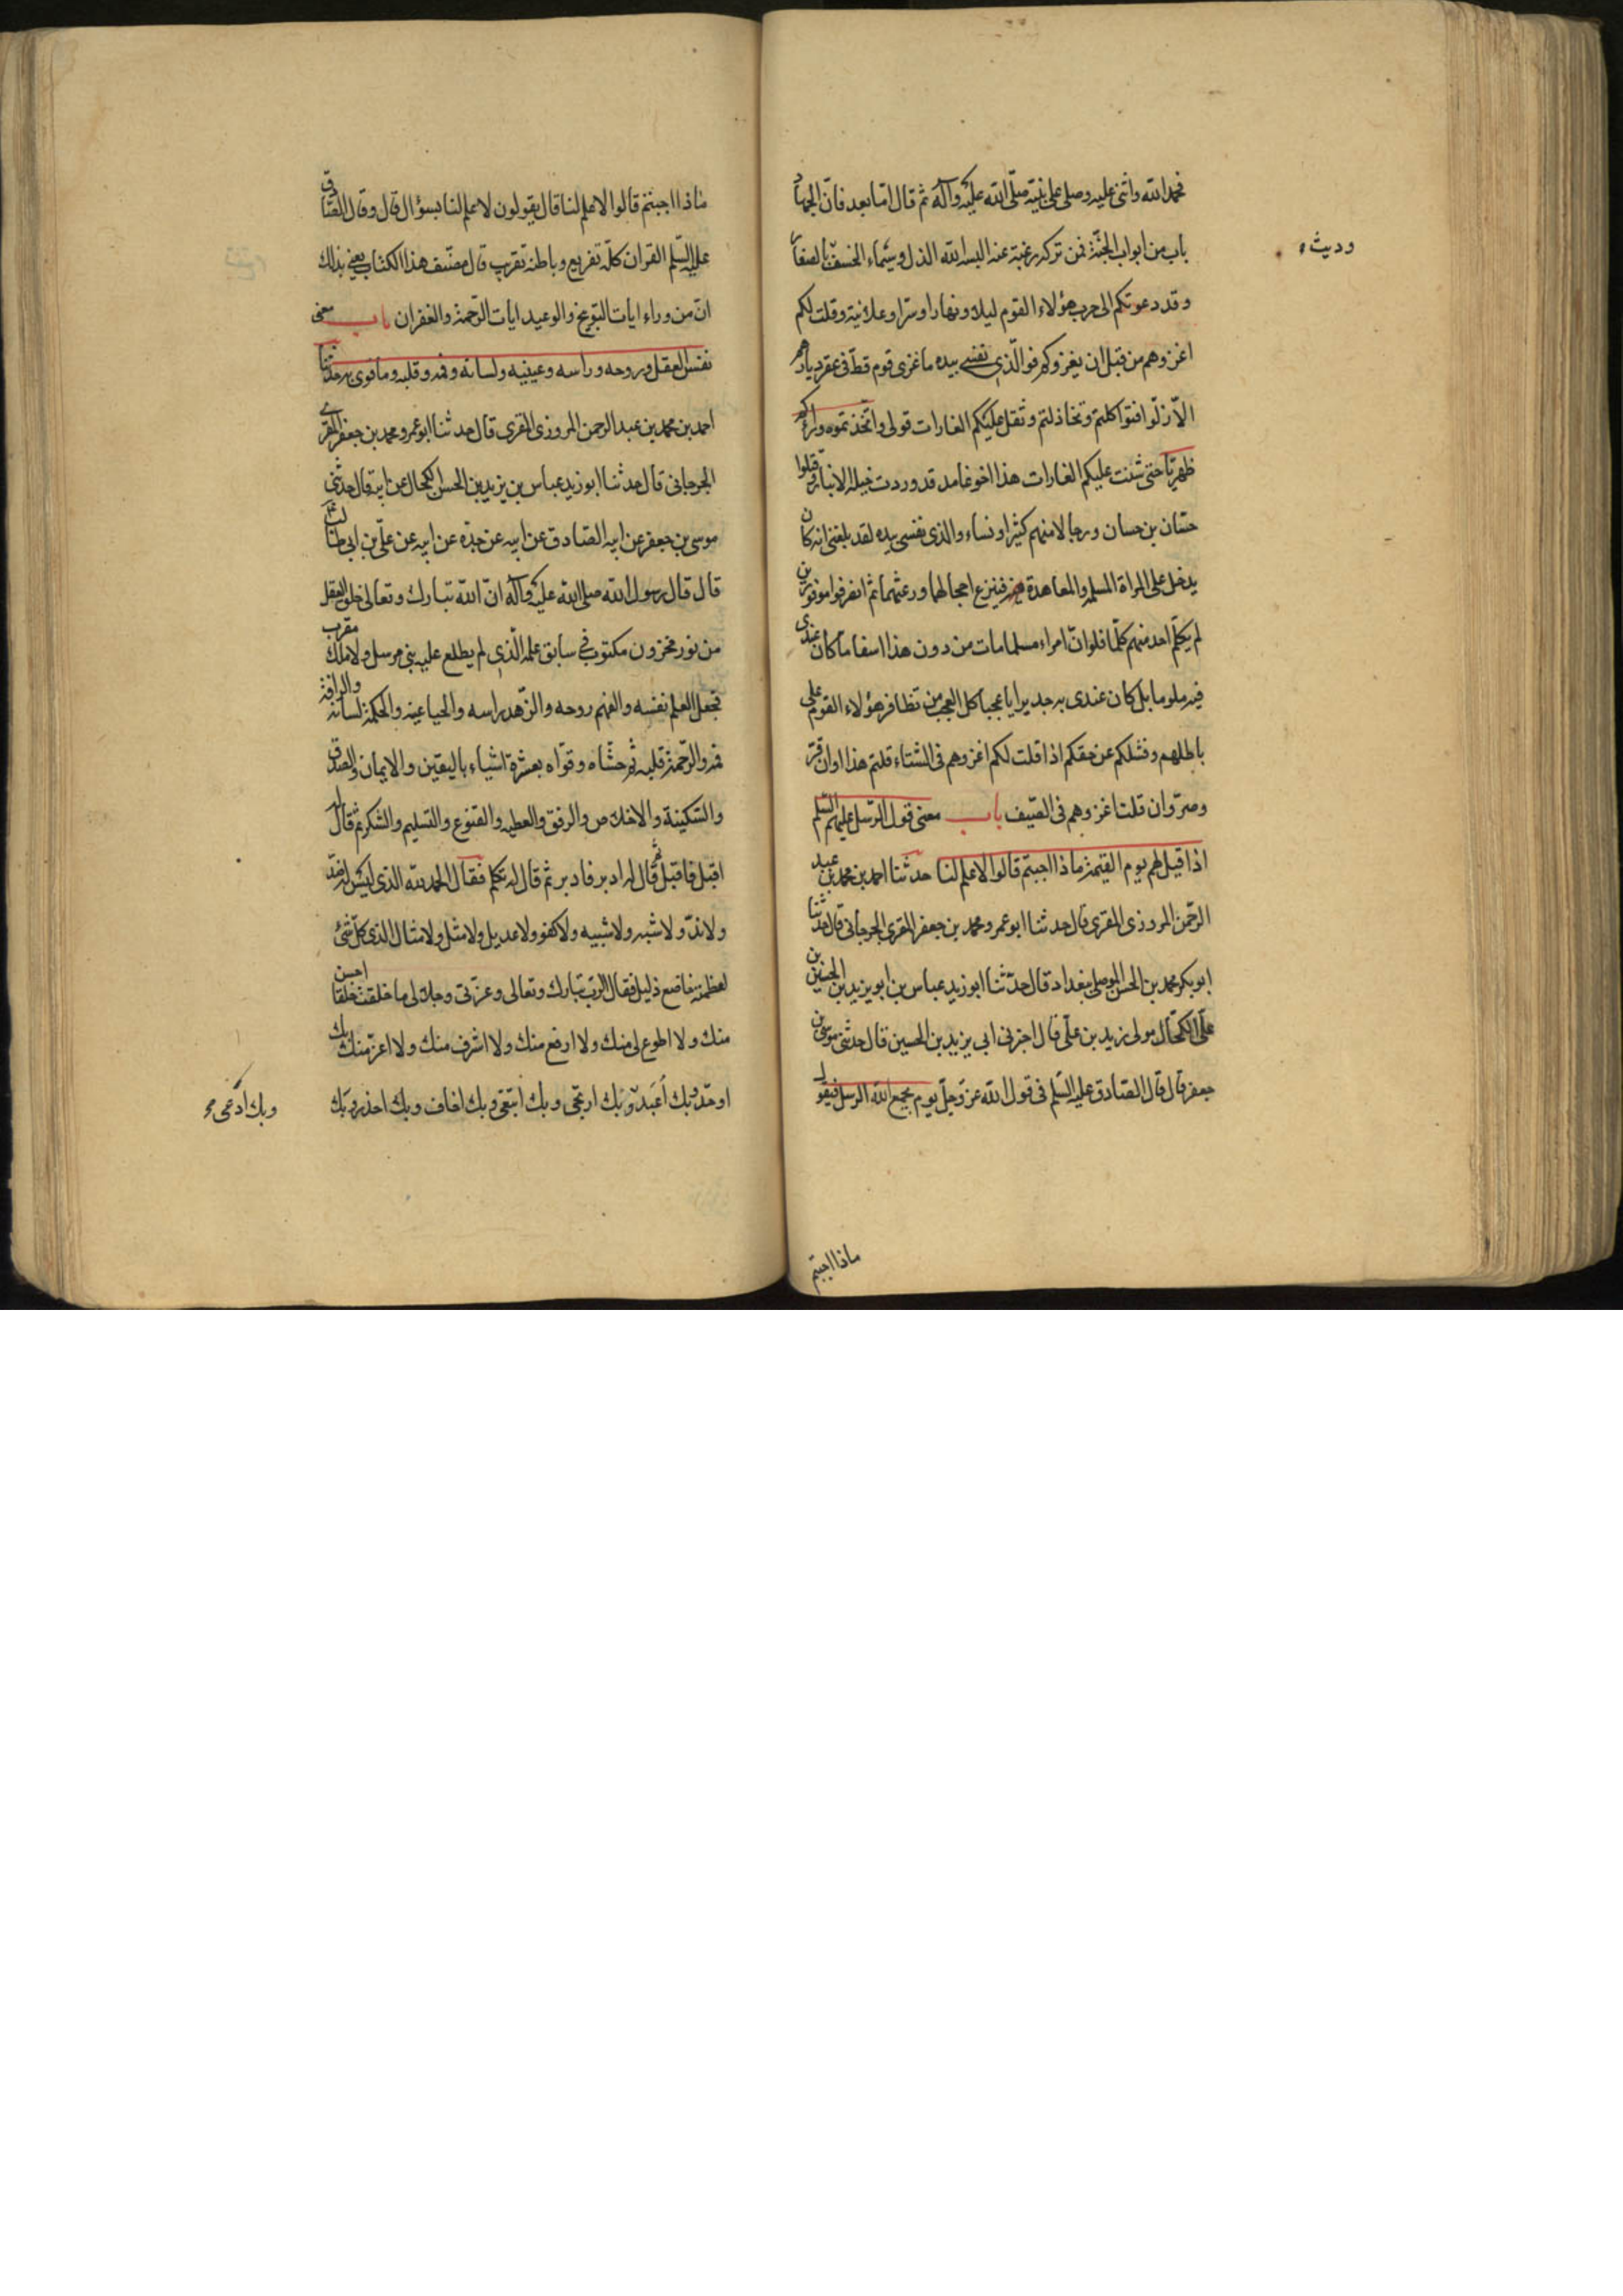 فحمد الله واثنى عليه وصلى على نبيه صلّى الله عليه وآله ثم قال امّا بعد فانّ الجهاد
باب من ابواب الجنّة فمن تركه رغبة عنه البسه الله الذل وسيماء الخسف وديث بالصغار
وقد دعوتكم الى حرب هؤلاء القوم ليلا ونهارا وسرّا وعلانية وقلت لكم
اغزوهم من قبل ان يغزوكم فوالّذي نفسي بيده ما غزى قوم قطّ في عقر ديارهم
الاّ ذلّوا فتواكلتم وتخاذلتم وثقل عليكم الغارات قولى واتّخذتموه وراءكم
ظهريّا حتى شنت عليكم الغارات هذا اخو غامد قد وردت خيله الانبار وقتلوا
حسّان بن حسان ورجالا منهم كثيرا ونساء والذى نفسى بيده لقد بلغنى انه كان
يدخل على المراة المسلمة والمعاهدة فينزع احجالهما ورعثهما ثم انصرفوا موفورين
لم يكلّم احد منهم كلما فلو انّ امراء مسلما مات من دون هذا اسفا ما كان عندى
فيه ملوما بل كان عندى به جديرا يا عجبا كل العجب من تظافر هؤلاء القوم على
باطلهم وفشلكم عن حقكم اذا قلت لكم اغزوهم فى الشتاء قلتم هذا اوان قرّ
وصرّ وان قلت اغزوهم فى الصّيف باب معنى قول الرّسل عليهم السّلم
اذا قيل لهم يوم القيمة ماذا اجبتم قالوا لا علم لنا حدثنا احمد بن محمد بن عبد
الرّحمن المروزى المقرى قال حدثنا ابو عمرو محمد بن جعفر المقرى الجرجانى قال حدثنا
ابو بكر محمد بن الحسن الموصلى ببغداد قال حدّثنا ابو زيد عباس بن ابو يزيد بن الحسين بن
علّى الكحّال مولى زيد بن علّى قال اخبرنى ابى يزيد بن الحسين قال حدثنى موسى بن
جعفر قال قال الصّادق عليه السّلم فى قول الله عزّ وجلّ يوم يجمع الله الرسل فيقول
وديث ه
ماذا اجبتم
ماذا اجبتم قالوا لا علم لنا قال يقولون لا علم لنا بسؤال قال وقال الصّادق
عليه السّلم القران كلّه تقريع وباطنه تقريب قال مصنّف هذا الكتاب يعنى بذلك
انّ من وراء ايات التوبيخ والوعيد ايات الرّحمة والغفران باب معنى
نفس العقل وروحه وراسه وعينيه ولسانه وفمه وقلبه وما قوى به حدّثنا
احمد بن محمد بن عبد الرحمن المروزى المقرى قال حدثنا ابو عمرو محمد بن جعفر المقرى
الجرجانى قال حدثنا ابو زيد عباس بن يزيد بن الحسن الكحال عن ابيه قال حدثنى
موسى بن جعفر عن ابيه الصادق عن ابيه عن جدّه عن ابيه عن علّى بن ابى طالب
قال قال رسول الله صلى الله عليه وآله انّ الله تبارك وتعالى خلق العقل
من نور مخزون مكتوب فى سابق علمه الّذى لم يطلع عليه نبى مرسل ولا ملك مقرّب
فجعل العلم نفسه والفهم روحه والزّهد راسه والحيا عينه والحكمة لسانه والرافة
فمه والرّحمة قلبه ثم حشّاه وقوّاه بعشرة اشياء باليقين والايمان والصدق
والسّكينة والاخلاص والرفق والعطيه والقنوع والتسليم والشكر ثم قال له
اقبل فاقبل ثم قال له ادبر فادبر ثم قال له تكلم فقال الحمد لله الذى ليس له ضدّ
ولا ندّ ولا شبه ولا شبيه ولا كفو ولا عديل ولا مثل ولا مثال الذى كلّ شئ
لعظمته خاضع ذليل فقال الرب تبارك وتعالى وعزتى وجلالى ما خلقت خلقا احسن
منك ولا اطوع لى منك ولا ارفع منك ولا اشرف منك ولا اعزّ منك بك
اوحّد وبك أعبد وبك ارتجى وبك ابتغى وبك اخاف وبك احذر وبك
وبك ادعى